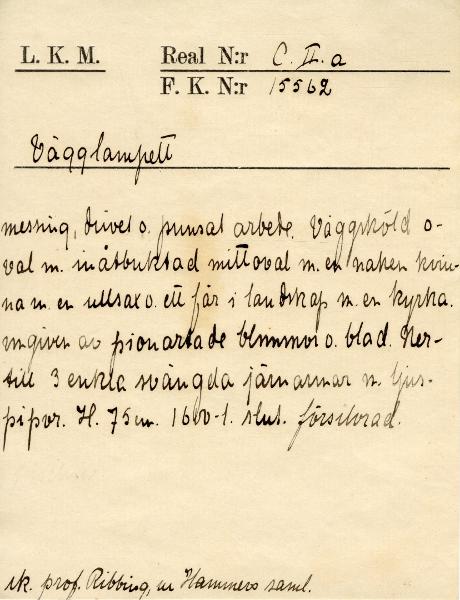 L. K. M. Real N:r C. II. a
F. K. N:r 15562
Vägglampett
messing, drivet o. punsat arbete. Väggsköld o-
val m. inåtbuktad mittoval m. en naken kvin-
na m. en ullsax o. ett får i landskap m. en kyrka.
omgiven av pionartade blommor o. blad. Ner-
till 3 enkla svängda järnarmar m. ljus-
pipor. H. 75 cm. 1600-t. slut. försilvrad.
ik. prof. Ribbing, ur Hammers saml.